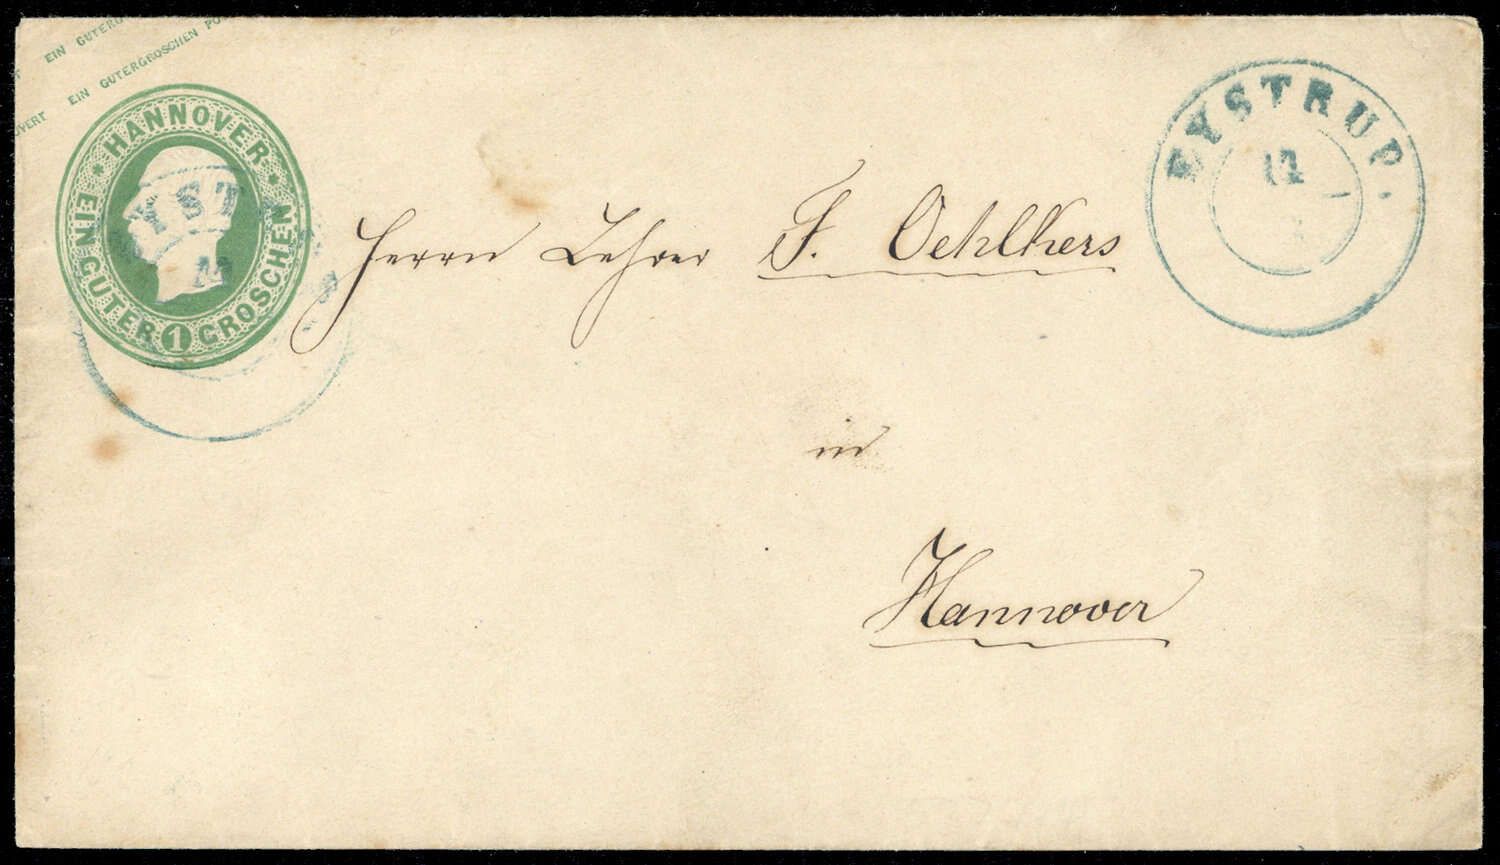 EIN GUTERG
EIN GUTERGROSCHEN PO
UVERT
HANNOVER
EIN GUTER GROSCHEN
1
YST
EYSTRUP.
Herrn Lehrer F. Oehlkers
in
Hannover